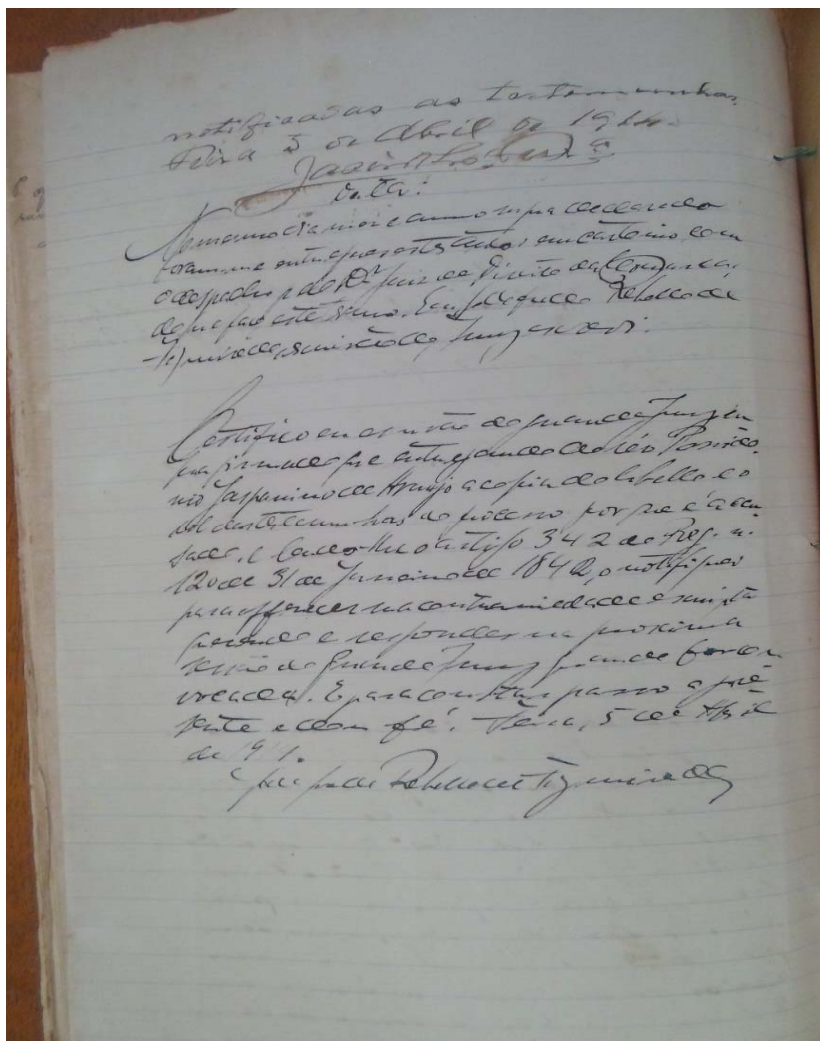 notificadas as testemunhas.
Feira 5 de Abril de 1914.
Data:
No mesmo dia mez e anno supra declarado
foram-me entregues estes autos em cartorio com
o despacho do Dr. Juiz de Direito da Comarca,
do que faço este termo. Eu, Rebello de
Figueiredo, escrivão do Jury escrevi.
Certifico eu escrivão do grande Jury
que entregando ao réo
nio de Araujo a copia do libello e o
rol das testemunhas do processo por que é accu
sado, e lendo-lhe o artigo 342 do Reg. n.
120 de 31 de Janeiro de 1842, o notifiquei
para offerecer sua contrariedade escripta
querendo e responder na proxima
sessão do grande Jury quando for con
vocada. E para constar passo a pre
sente e dou fé. Feira, 5 de Abril
de 191
Rebello de Figueiredo